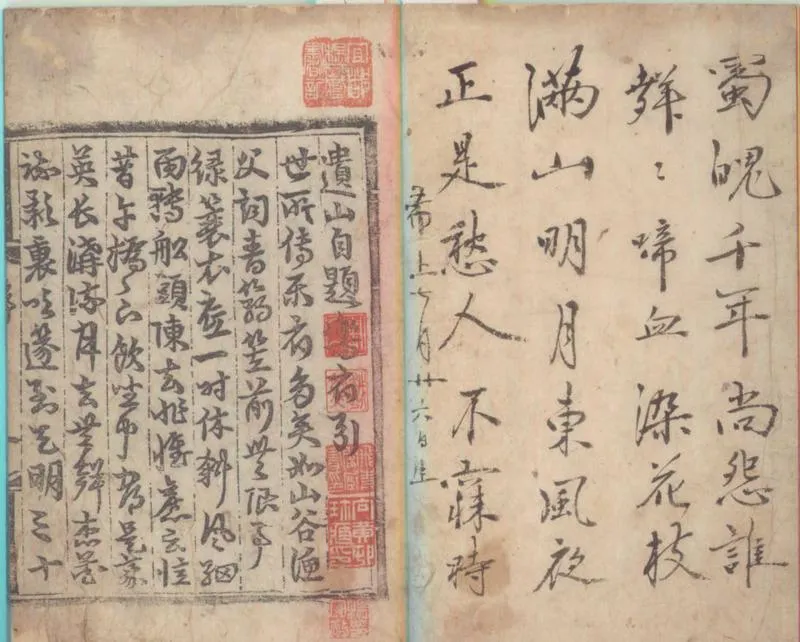 蜀魄千年尚怨誰
聲〻啼血染花枝
滿山明月東風夜
正是愁人不寐時
上七月廿六日
宜都楊氏藏書記
遺山自題樂府引
世所傳樂府多矣如山谷漁
父詞青篛笠前無限事
綠蓑衣底一時休斜風細
雨轉船頭陳去非懷舊云憶
昔午橋〻下飲坐中都是豪
英長溝流月去無聲杏花
疎影裏吹篴到天明三十
向黃邨珍藏印